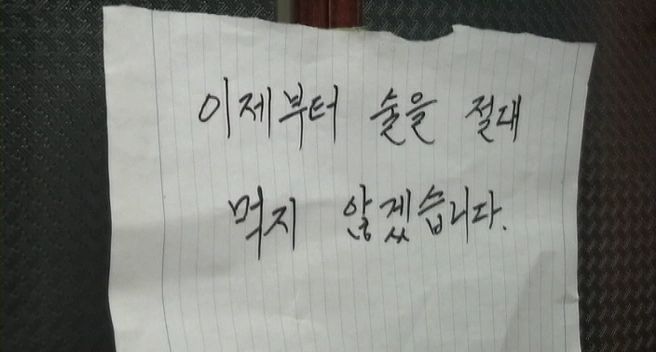 이제부터 술을 절대
먹지 않겠습니다.